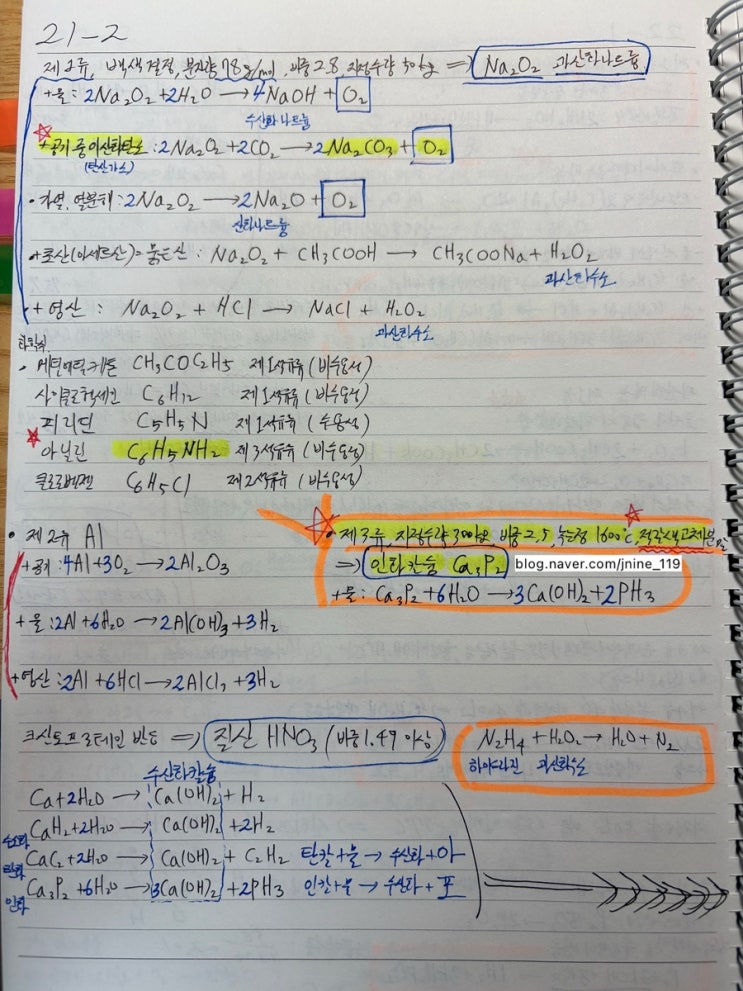 21-2
제1류, 백색결정, 분자량 78g/mol, 비중 2.8, 지정수량 50kg ⇒ Na₂O₂ 과산화나트륨
+물: 2Na₂O₂ + 2H₂O → 4NaOH + O₂
수산화나트륨
☆ +공기 중 이산화탄소 : 2Na₂O₂ + 2CO₂ → 2Na₂CO₃ + O₂
(탄산가스)
• 가열, 열분해 : 2Na₂O₂ → 2Na₂O + O₂
산화나트륨
+초산(아세트산)= 묽은산 : Na₂O₂ + CH₃COOH → CH₃COONa + H₂O₂
과산화수소
+염산 : Na₂O₂ + HCl → NaCl + H₂O₂
과산화수소
• 메틸에틸케톤 CH₃COC₂H₅ 제1석유류 (비수용성)
사이클로헥세인 C₆H₁₂ 제1석유류 (비수용성)
피리딘 C₅H₅N 제1석유류 (수용성)
☆ 아닐린 C₆H₅NH₂ 제3석유류 (비수용성)
클로로벤젠 C₆H₅Cl 제2석유류 (비수용성)
• 제2류 Al
+공기 : 4Al + 3O₂ → 2Al₂O₃
+물 : 2Al + 6H₂O → 2Al(OH)₃ + 3H₂
+염산 : 2Al + 6HCl → 2AlCl₃ + 3H₂
☆ • 제3류, 지정수량 300kg, 비중 2.5, 녹는점 1600℃ ☆ 적갈색고체분말
⇒ 인화칼슘 Ca₃P₂ blog.naver.com/jnine_119
+물 : Ca₃P₂ + 6H₂O → 3Ca(OH)₂ + 2PH₃
크산토프로테인 반응 ⇒ 질산 HNO₃ (비중 1.49 이상)
N₂H₄ + H₂O₂ → H₂O + N₂
하이드라진 과산화수소
수산화칼슘
Ca + 2H₂O → Ca(OH)₂ + H₂
수소화 CaH₂ + 2H₂O → Ca(OH)₂ + 2H₂
탄화 CaC₂ + 2H₂O → Ca(OH)₂ + C₂H₂ 탄칼+물 → 수산화+아
인화 Ca₃P₂ + 6H₂O → 3Ca(OH)₂ + 2PH₃ 인칼+물 → 수산화+포